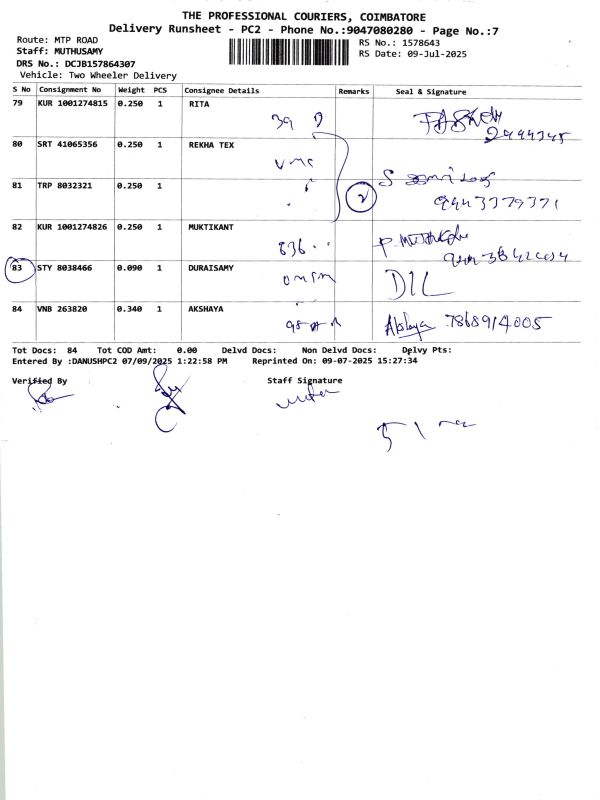 THE PROFESSIONAL COURIERS, COIMBATORE
Delivery Runsheet - PC2 - Phone No.:9047080280 - Page No.:7
Route: MTP ROAD
RS No.: 1578643
Staff: MUTHUSAMY
RS Date: 09-Jul-2025
DRS No.: DCJB157864307
Vehicle: Two Wheeler Delivery
S No Consignment No Weight PCS Consignee Details Remarks Seal & Signature
79 KUR 1001274815 0.250 1 RITA
39
80 SRT 41065356 0.250 1 REKHA TEX
81 TRP 8032321 0.250 1
2
9443379371
82 KUR 1001274826 0.250 1 MUKTIKANT
836
83 STY 8038466 0.090 1 DURAISAMY
D/L
84 VNB 263820 0.340 1 AKSHAYA
Akshaya 7868914005
Tot Docs: 84 Tot COD Amt: 0.00 Delvd Docs: Non Delvd Docs: Delvy Pts:
Entered By :DANUSHPC2 07/09/2025 1:22:58 PM Reprinted On: 09-07-2025 15:27:34
Verified By Staff Signature